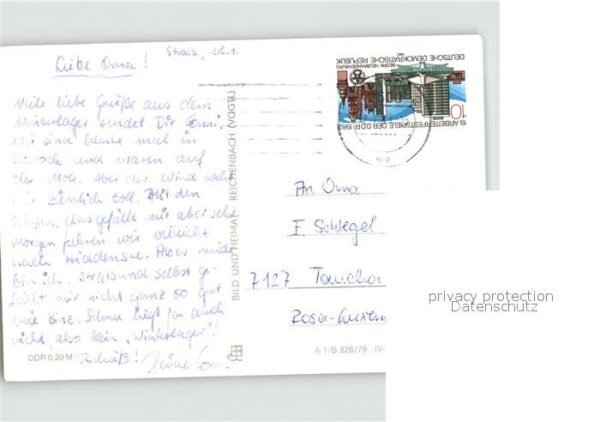 Strals., 12.1.
Liebe Oma!
Viele liebe Grüße aus dem
Winterlager sendet Dir Conni.
Wir sind heute mal in
und waren auf
der Mole. Aber der Wind
ziemlich toll. Mit den
das gefällt mir aber sehr
Morgen fahren wir vielleicht
nach Hiddensee. Aber müde
bin ich. Stralsund selbst ge-
fällt mir nicht ganz so gut
wie Binz. Schnee liegt ja auch
nicht, also kein "Winterlager"!
Tschüß! Deine Conni
DDR 0,20 M
BILD UND HEIMAT REICHENBACH (VOGTL)
DEUTSCHE DEMOKRATISCHE REPUBLIK
BEZIRK NEUBRANDENBURG
10
19. ARBEITERFESTSPIELE DER DDR 1982
An Oma
F. Schlegel
7127 Taucha
Rosa-Luxem
A 1/B 826/79 IV-
privacy protection
Datenschutz